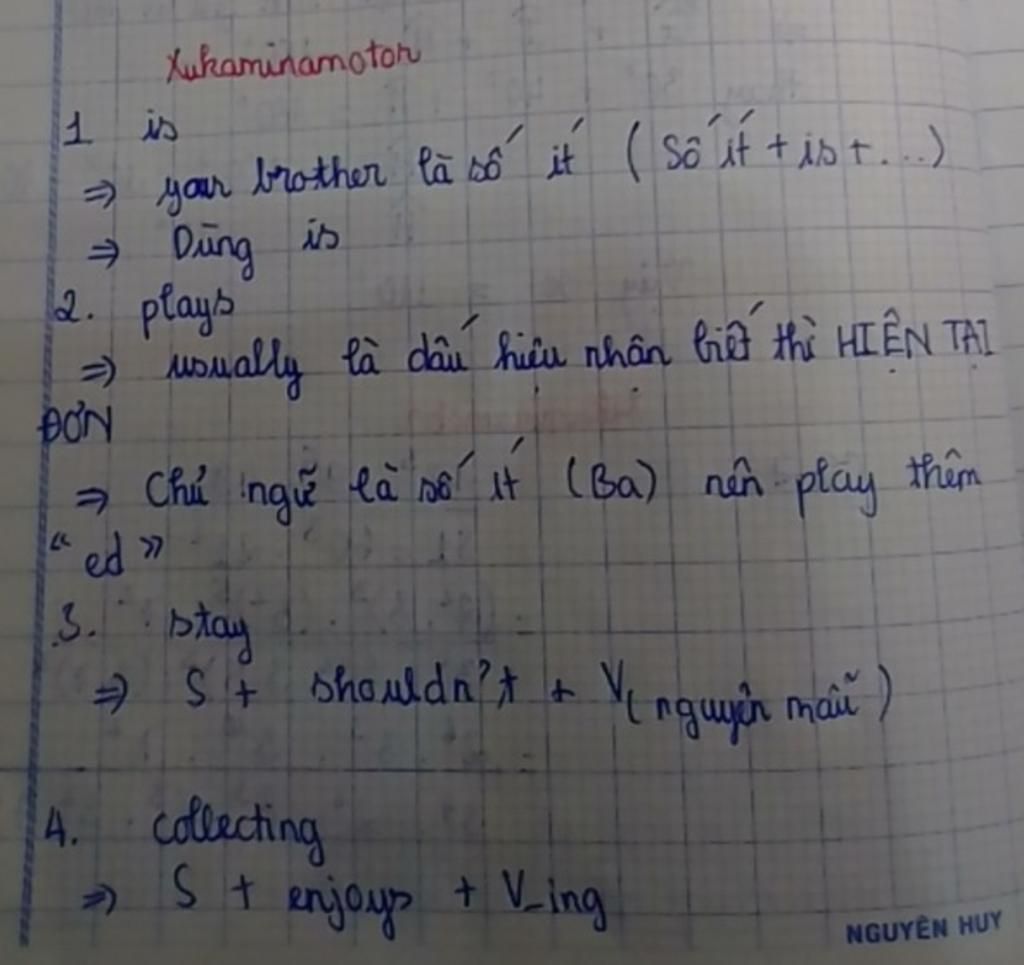 Xukaminamotor
1 is
⇒ your brother là số ít (Số ít + is + ...)
⇒ Dùng is
2. plays
⇒ usually là dấu hiệu nhận biết thì HIỆN TẠI
ĐƠN
⇒ Chủ ngữ là số ít (Ba) nên play thêm
"ed"
3. stay
⇒ S + shouldn't + V( nguyên mẫu)
4. collecting
⇒ S + enjoys + V_ing
NGUYÊN HUY